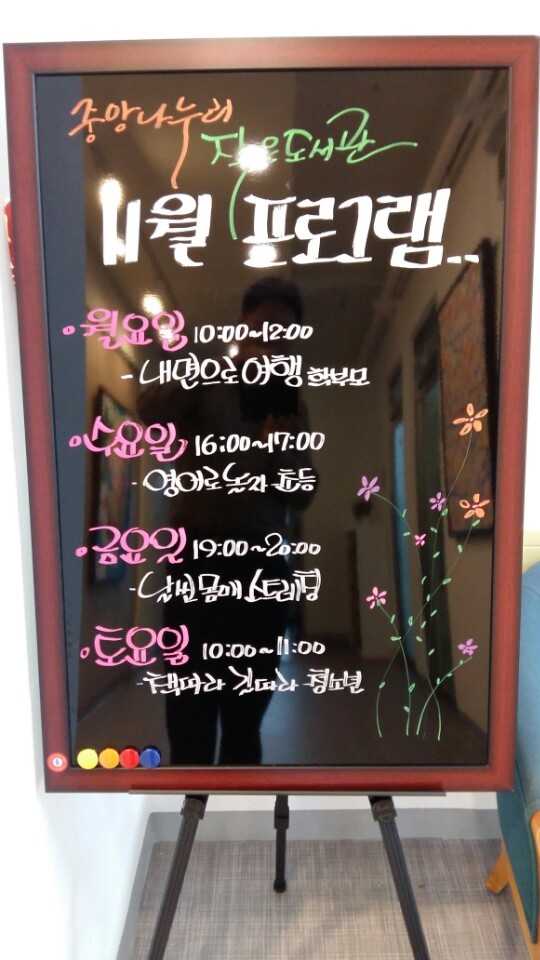 중앙나누리
작은도서관
11월 프로그램..
월요일 10:00~12:00
- 내면으로 여행 학부모
수요일 16:00~17:00
- 영어로 놀자 초등
금요일 19:00~20:00
- 날씬몸매 스트레칭
토요일 10:00~11:00